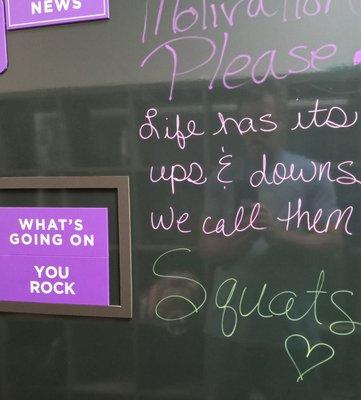 NEWS
WHAT'S
GOING ON
YOU
ROCK
Motivation
Please
Life has its
ups & downs
we call them
Squats